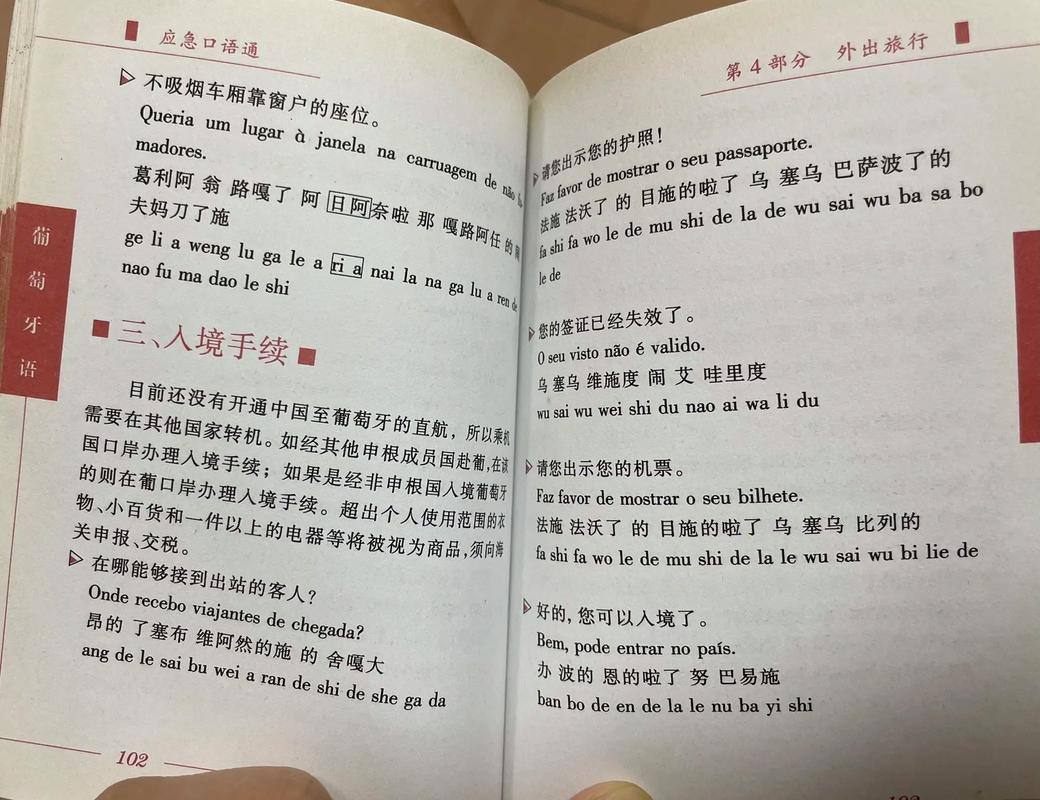 应急口语通
不吸烟车厢靠窗户的座位。
Queria um lugar à janela na carruagem de não
madores.
葛利阿 翁 路嘎了 阿 日阿奈啦 那 嘎路阿任 的
夫妈刀了施
ge li a weng lu ga le a ri a nai la na ga lu a ren de
nao fu ma dao le shi
三、入境手续
目前还没有开通中国至葡萄牙的直航，所以乘机
需要在其他国家转机。如经其他申根成员国赴葡,在该
国口岸办理入境手续；如果是经非申根国入境葡萄牙
的则在葡口岸办理入境手续。超出个人使用范围的衣
物、小百货和一件以上的电器等将被视为商品,须向海
关申报、交税。
在哪能够接到出站的客人？
Onde recebo viajantes de chegada?
昂的 了塞布 维阿然的施 的 舍嘎大
ang de le sai bu wei a ran de shi de she ga da
102
葡萄牙语
第4部分 外出旅行
请您出示您的护照！
Faz favor de mostrar o seu passaporte.
法施 法沃了 的 目施的啦了 乌 塞乌 巴萨波了的
fa shi fa wo le de mu shi de la de wu sai wu ba sa bo
le de
您的签证已经失效了。
O seu visto não é valido.
乌 塞乌 维施度 闹 艾 哇里度
wu sai wu wei shi du nao ai wa li du
请您出示您的机票。
Faz favor de mostrar o seu bilhete.
法施 法沃了 的 目施的啦了 乌 塞乌 比列的
fa shi fa wo le de mu shi de la le wu sai wu bi lie de
好的, 您可以入境了。
Bem, pode entrar no país.
办 波的 恩的啦了 努 巴易施
ban bo de en de la le nu ba yi shi